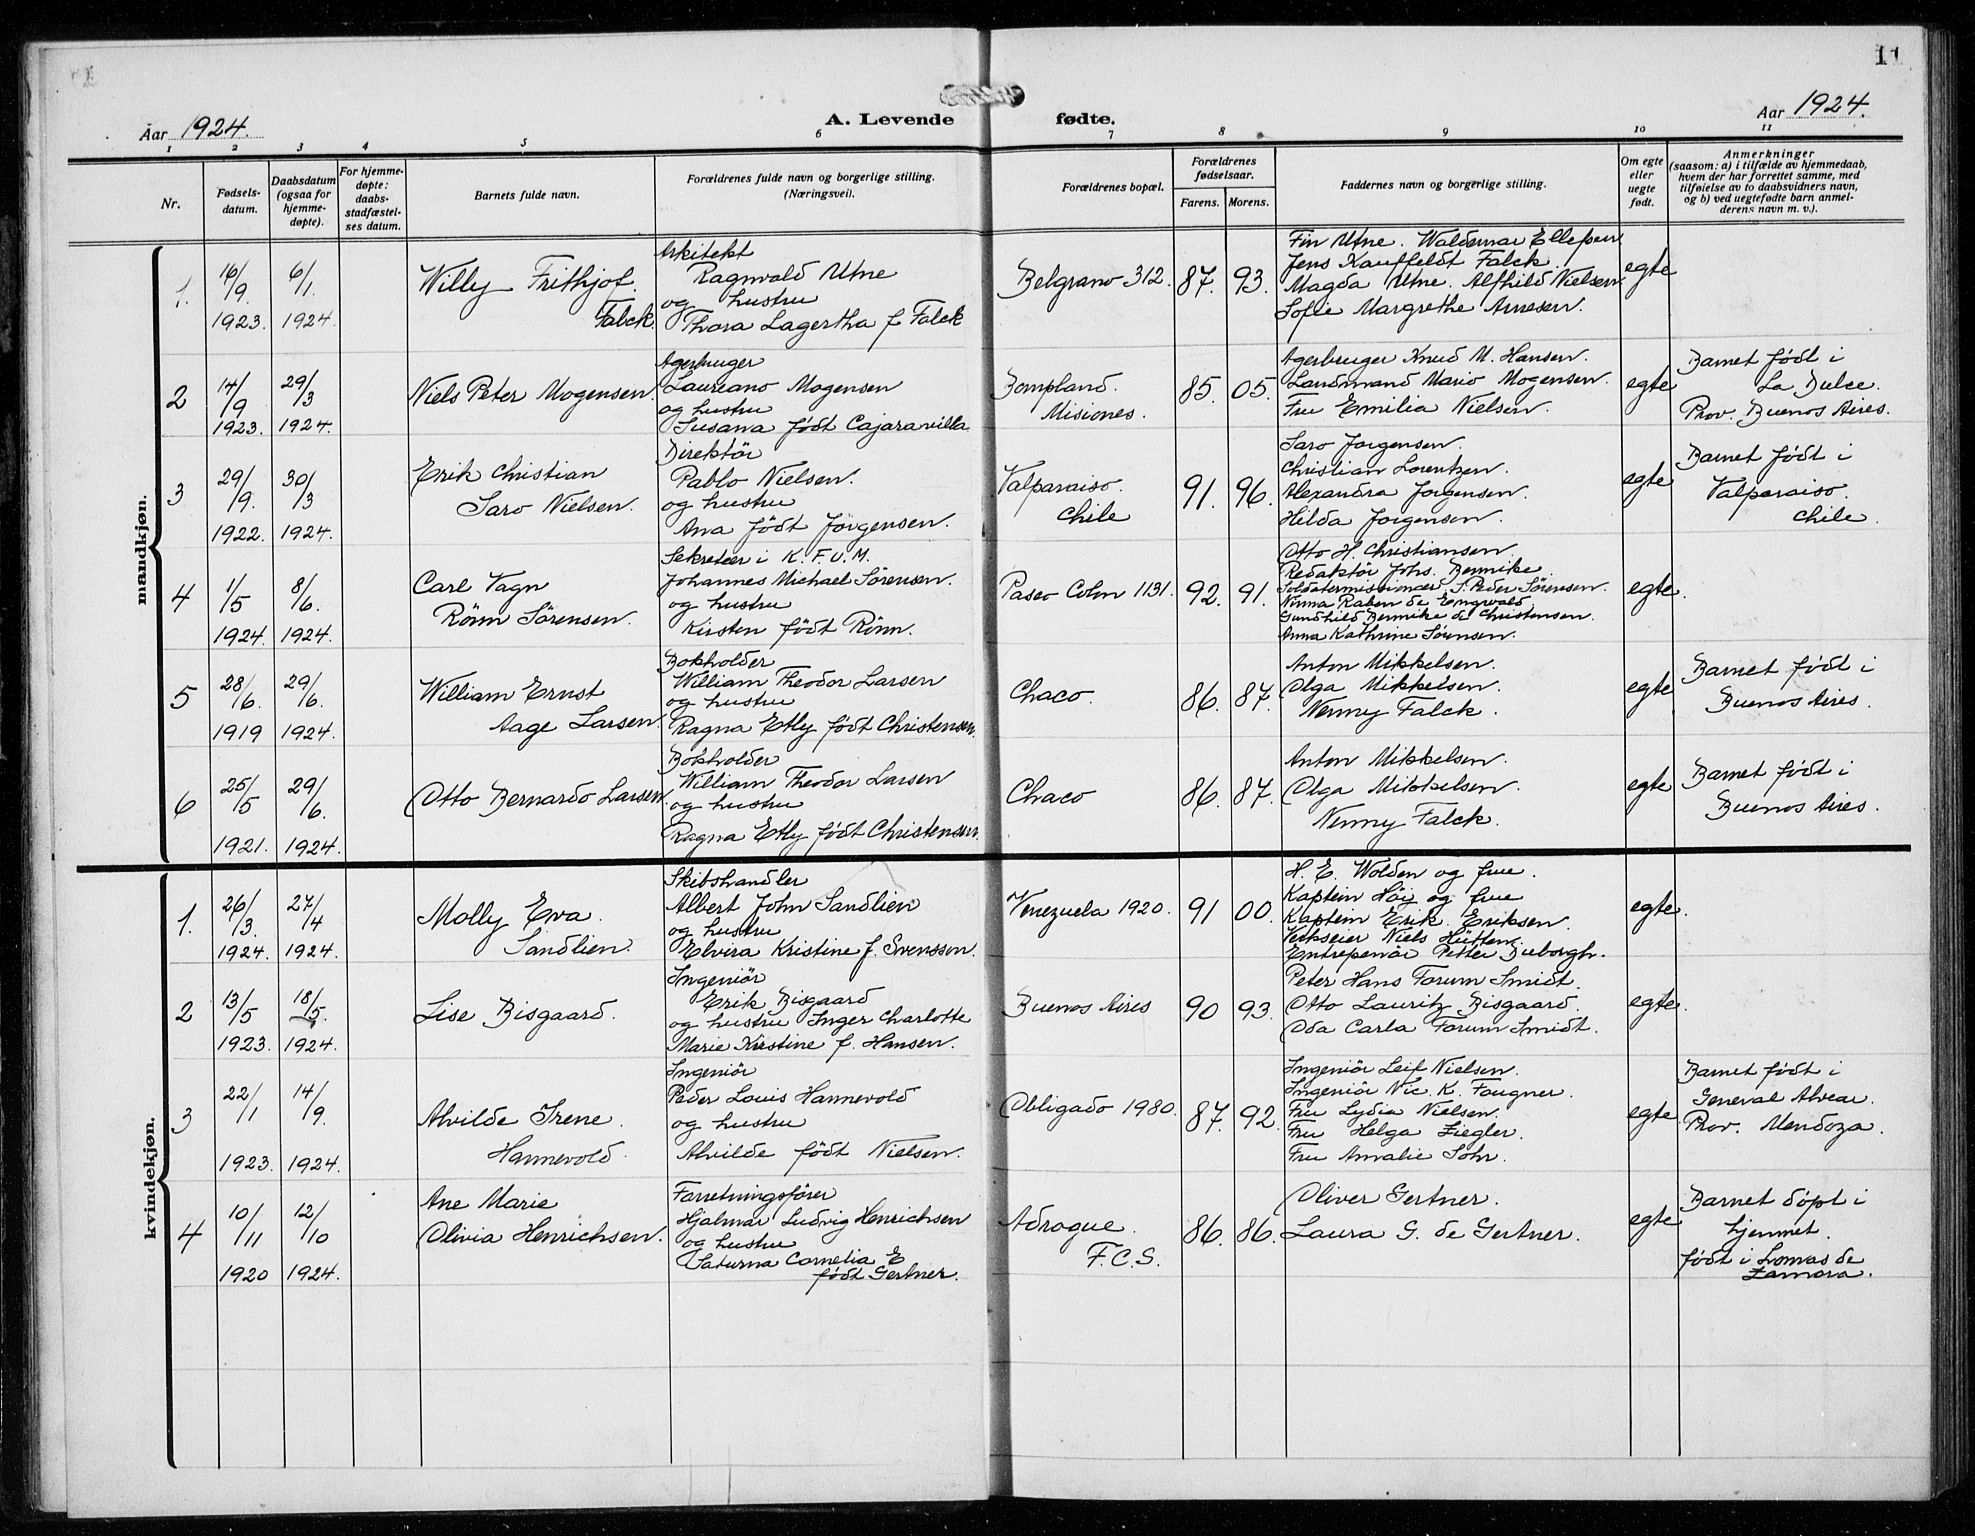 11
Aar 1924.
A. Levende fødte.
Aar 1924.
1 2 3 4 5 6 7 8 9 10 11
Nr.
Fødsels-
datum.
Daabsdatum
(ogsaa for
hjemme-
døpte).
For hjemme-
døpte:
daabs-
stadfæstel-
ses datum.
Barnets fulde navn.
Forældrenes fulde navn og borgerlige stilling.
(Næringsvei).
Forældrenes bopæl.
Forældrenes
fødselsaar.
Farens. Morens.
Faddernes navn og borgerlige stilling.
Om egte
eller
uegte
født.
Anmerkninger
(saasom: a) i tilfælde av hjemmedaab,
hvem der har forrettet samme, med
tilføielse av to daabsvidners navn,
og b) ved uegtefødte barn anmel-
derens navn m. v.).
mandkjøn.
1.
16/9.
1923.
6/1.
1924.
Willy Frithjof
Falck.
Arkitekt
Ragnvald Utne
og hustru
Thora Lagertha f Falck
Belgrano 312.
87. 93.
Fin Utne. Waldemar Ellefsen
Jens Kauffeldt Falck.
Magda Utne. Alfhild Nielsen.
Sofie Margrethe Arnesen.
egte
2
14/9
1923.
29/3
1924.
Niels Peter Mogensen.
Agerbruger
Laureano Mogensen
og hustru
Susana født Cajaravilla
Bompland.
Misiones.
85. 05.
Agerbruger Knud M. Hansen.
Landmand Mario Mogensen.
Fru Emilia Nielsen.
egte
Barnet født i
La Dulce.
Prov. Buenos Aires.
3
29/9.
1922.
30/3
1924.
Erik Christian
Saro Nielsen.
Direktör
Pablo Nielsen.
og hustru
Ana født Jörgensen.
Valparaiso.
Chile
91. 96.
Saro Jorgensen.
Christian Lorentzen.
Alexandra Jorgensen.
Hilda Jorgensen.
egte
Barnet født i
Valparaiso.
Chile.
4
1/5
1924.
8/6.
1924.
Carl Vagn
Rönn Sörensen.
Sekretær i K.F.U.M.
Johannes Michael Sörensen.
og hustru
Kirsten født Rönn.
Paseo Colon 1131.
92. 91.
Otto H. Christiansen.
Redaktör Johs. Bennike.
Soldatermissionær S. Peder Sörensen.
Ninna Raben de Engvald
Gundhild Bennike de Christensen.
Anna Kathrine Sörensen.
egte.
5
28/6.
1919
29/6.
1924.
William Ernst
Aage Larsen.
Bokholder
William Theodor Larsen
og hustru
Ragna Etly født Christensen.
Chaco.
86. 87.
Anton Mikkelsen.
Olga Mikkelsen.
Nenny Falck.
egte
Barnet født i
Buenos Aires.
6
25/5
1921.
29/6.
1924.
Otto Bernardo Larsen.
Bokholder
William Theodor Larsen
og hustru
Ragna Etly født Christensen
Chaco
86. 87.
Anton Mikkelsen.
Olga Mikkelsen.
Nenny Falck.
egte
Barnet født i
Buenos Aires.
kvindekjøn.
1.
26/3.
1924.
27/4
1924.
Molly Eva.
Sandlien.
Skibshandler
Albert John Sandlien
og hustru
Elvira Kristine f. Svensson.
Venezuela 1920.
91 00.
H. E. Wolden og frue.
Kaptein Höy og frue
Kaptein Erik Eriksen.
Verkseier Niels Hütten.
Entreprenör Petter Duborgh.
egte.
2
13/5
1923.
18/5.
1924.
Lise Bisgaard.
Ingeniör
Erik Bisgaard
og hustru Inger Charlotte
Marie Kirstine f. Hansen.
Buenos Aires
90 93.
Peter Hans Forum Smidt.
Otto Lauritz Bisgaard.
Oda Carla Forum Smidt.
egte.
3
22/1
1923.
14/9.
1924.
Alvilde Irene.
Hannevold.
Ingeniör
Peder Louis Hannevold
og hustru
Alvilde født Nielsen.
Obligado 1980.
87. 92.
Ingeniör Leif Nielsen.
Ingeniör Nic. K. Fougner.
Fru Lydia Nielsen.
Fru Helga Ziegler.
Fru Amalie Sohr.
egte
Barnet født i
General Alvear.
Prov. Mendoza.
4
10/11
1920
12/10
1924.
Ane Marie
Olivia Henrichsen.
Forretningsförer
Hjalmar Ludvig Henrichsen
og hustru
Saturna Cornelia E
født Gertner.
Adrogue.
F.C.S.
86. 86.
Oliver Gertner.
Laura G. de Gertner.
egte
Barnet döpt i
hjemmet.
født i Lomas de
Zamora.